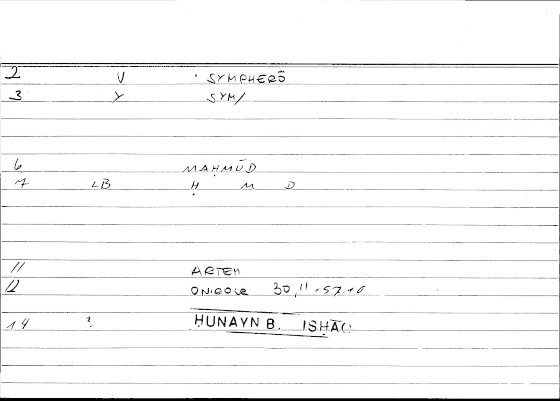 2 V SYMPHERŌ
3 Y SYM/
6 MAḤMŪD
7 LB Ḥ M D
11 ARTEM
12 30,11
14 ? HUNAYN B. ISHĀQ